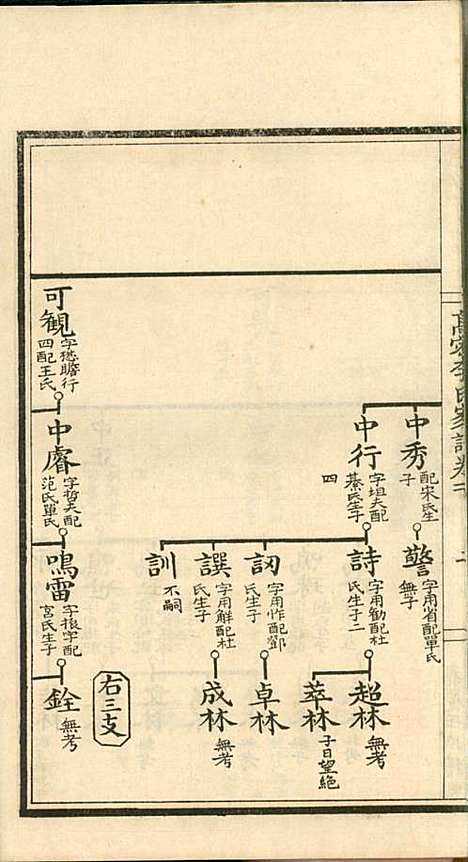 高密李氏家譜卷
中秀
配宋氏生
子
警
字用省配單氏
無子
中行
字坦夫配
綦氏生子
四
詩
字用勸配杜
氏生子二
超林
無考
萃林
子日望絕
訒
字用怍配鄧
氏生子
卓林
譔
字用解配杜
氏生子
成林
無考
訓
不嗣
右三支
可觀
字瞻行
四配王氏
中睿
字哲夫配
范氏單氏
鳴雷
字振宇配
宮氏生子
銓
無考